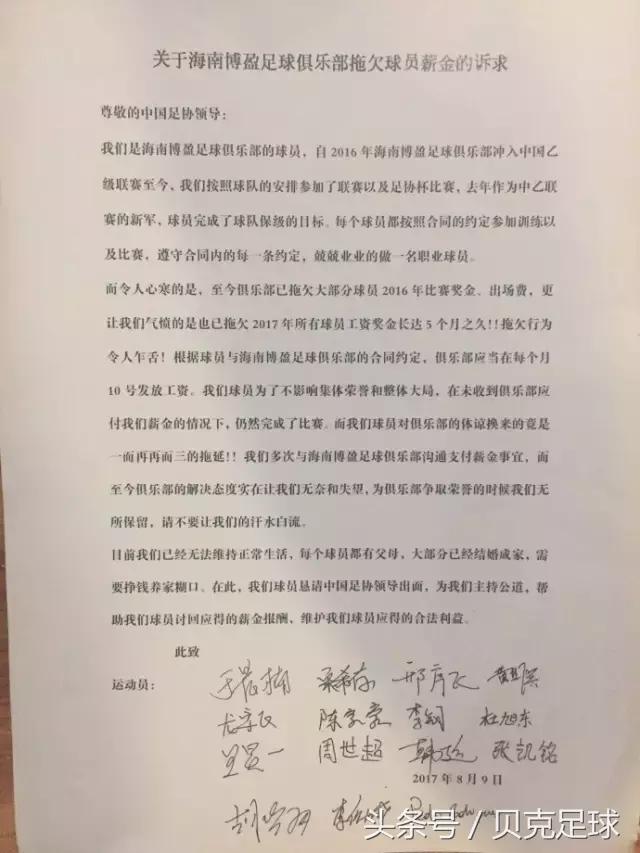 关于海南博盈足球俱乐部拖欠球员薪金的诉求
尊敬的中国足协领导：
我们是海南博盈足球俱乐部的球员，自2016年海南博盈足球俱乐部冲入中国乙
级联赛至今，我们按照球队的安排参加了联赛以及足协杯比赛，去年作为中乙联
赛的新军，球员完成了球队保级的目标。每个球员都按照合同的约定参加训练以
及比赛，遵守合同内的每一条约定，兢兢业业的做一名职业球员。
而令人心寒的是，至今俱乐部已拖欠大部分球员2016年比赛奖金、出场费，更
让我们气愤的是也已拖欠2017年所有球员工资奖金长达5个月之久!!拖欠行为
令人乍舌！根据球员与海南博盈足球俱乐部的合同约定，俱乐部应当在每个月
10号发放工资。我们球员为了不影响集体荣誉和整体大局，在未收到俱乐部应
付我们薪金的情况下，仍然完成了比赛。而我们球员对俱乐部的体谅换来的竟是
一而再再而三的拖延!! 我们多次与海南博盈足球俱乐部沟通支付薪金事宜，而
至今俱乐部的解决态度实在让我们无奈和失望，为俱乐部争取荣誉的时候我们无
所保留，请不要让我们的汗水白流。
目前我们已经无法维持正常生活，每个球员都有父母，大部分已经结婚成家，需
要挣钱养家糊口。在此，我们球员恳请中国足协领导出面，为我们主持公道，帮
助我们球员讨回应得的薪金报酬，维护我们球员应得的合法利益。
此致
运动员：
李钢 杜旭东
周世超 张凯铭
2017年8月9日
头条号／贝克足球